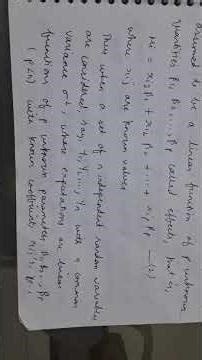 assumed to be a linear function of p unknown
quantities β1, β2, ..., βp called effects, that is,
Mi = xi1 β1 + xi2 β2 + ... + xip βp —(2)
where xij are known values
Thus when a set of n independent random variables
are considered, say, Y1, Y2, ..., Yn with a common
variance σ², whose expectations are linear
functions of p unknown parameters β1, β2, ... βp
(p<n) with known coefficients